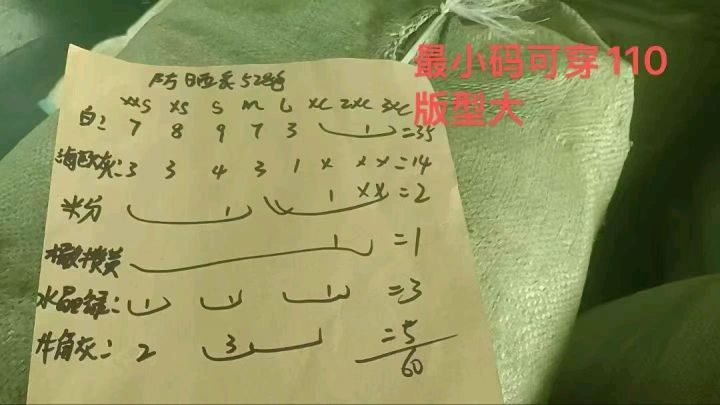 最小码可穿110
版型大
防晒系52
xxS xS S m L xL 2xL 3xL
白: 7 8 9 7 3 1 =35
海鸥灰: 3 3 4 3 1 x x x =14
米 1 1 xx =2
1 =1
水晶绿: 1 1 1 =3
牛角灰: 2 3 =5
60